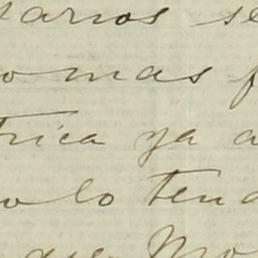 tarios se
o mas f
trica ya a
o lo tend
que Mo